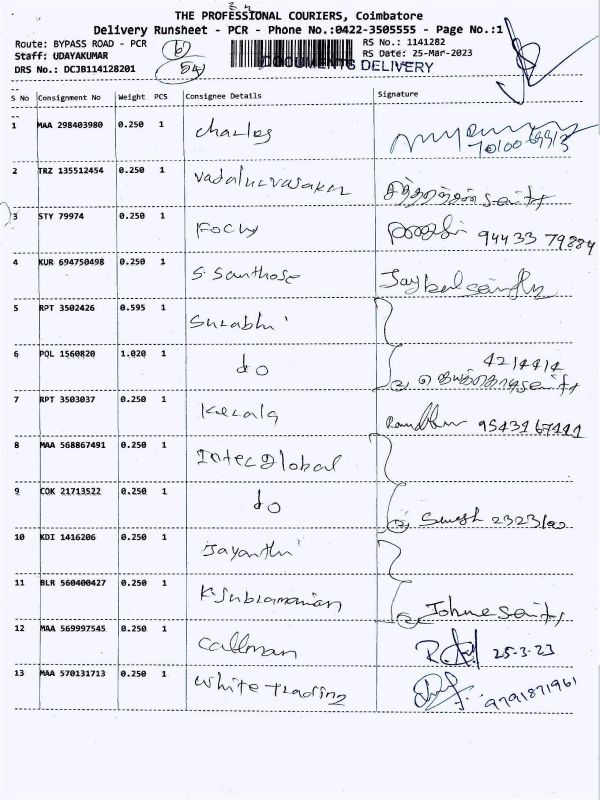 THE PROFESSIONAL COURIERS, Coimbatore
Delivery Runsheet - PCR - Phone No.:0422-3505555 - Page No.:1
Route: BYPASS ROAD - PCR
RS No.: 1141282
Staff: UDAYAKUMAR
RS Date: 25-Mar-2023
DRS No.: DCJB114128201
DOCUMENTS DELIVERY
S No Consignment No Weight PCS Consignee Details Signature
1 MAA 298403980 0.250 1 Charles
2 TRZ 135512454 0.250 1 Security
3 STY 79974 0.250 1 Focus 94433 79884
4 KUR 694750498 0.250 1 S. Santhose
5 RPT 3502426 0.595 1 Surabhi
6 POL 1560820 1.020 1 do 4214414
7 RPT 3503037 0.250 1 Kerala
8 MAA 568867491 0.250 1 Intec Global
9 COK 21713522 0.250 1 do
10 KDI 1416206 0.250 1 Jayanthi
11 BLR 560400427 0.250 1 K. Subramanian
12 MAA 569997545 0.250 1 Callman 25.3.23
13 MAA 570131713 0.250 1 White trading 9791871961